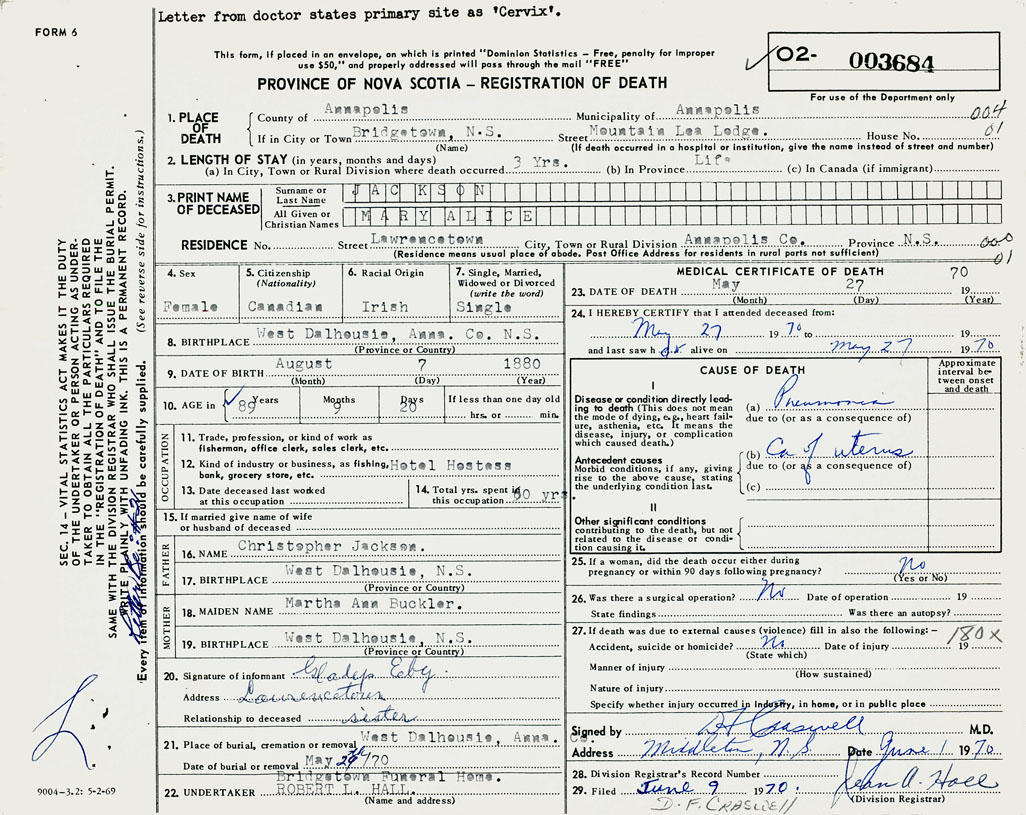 Letter from doctor states primary site as 'Cervix'.
FORM 6
This form, if placed in an envelope, on which is printed "Dominion Statistics – Free, penalty for improper
use $50," and properly addressed will pass through the mail "FREE"
PROVINCE OF NOVA SCOTIA – REGISTRATION OF DEATH
O2- 003684
For use of the Department only
1. PLACE OF DEATH
County of Annapolis Municipality of Annapolis 004
If in City or Town Bridgetown, N.S. Street Mountain Lea Lodge. House No. 01
(Name) (If death occurred in a hospital or institution, give the name instead of street and number)
2. LENGTH OF STAY (in years, months and days)
(a) In City, Town or Rural Division where death occurred 3 Yrs. (b) In Province Life (c) In Canada (if immigrant)
3. PRINT NAME OF DECEASED
Surname or Last Name JACKSON
All Given or Christian Names MARY ALICE
RESIDENCE No. Street Lawrencetown City, Town or Rural Division Annapolis Co. Province N.S.
(Residence means usual place of abode. Post Office Address for residents in rural parts not sufficient) 01
4. Sex
Female
5. Citizenship
(Nationality)
Canadian
6. Racial Origin
Irish
7. Single, Married,
Widowed or Divorced
(write the word)
Single
8. BIRTHPLACE West Dalhousie, Anna. Co. N.S.
(Province or Country)
9. DATE OF BIRTH August 7 1880
(Month) (Day) (Year)
10. AGE in Years Months Days If less than one day old
89 9 20 hrs. or min.
OCCUPATION
11. Trade, profession, or kind of work as
fisherman, office clerk, sales clerk, etc.
12. Kind of industry or business, as fishing, Hotel Hostess
bank, grocery store, etc.
13. Date deceased last worked
at this occupation
14. Total yrs. spent in
this occupation 50 yrs.
15. If married give name of wife
or husband of deceased
FATHER
16. NAME Christopher Jackson.
17. BIRTHPLACE West Dalhousie, N.S.
(Province or Country)
MOTHER
18. MAIDEN NAME Martha Ann Buckler.
19. BIRTHPLACE West Dalhousie, N.S.
(Province or Country)
20. Signature of informant Gladys Eby.
Address Lawrencetown
Relationship to deceased sister
21. Place of burial, cremation or removal West Dalhousie, Anna. Co.
Date of burial or removal May 29/70
Bridgetown Funeral Home.
22. UNDERTAKER ROBERT L. HALL.
(Name and address)
MEDICAL CERTIFICATE OF DEATH
23. DATE OF DEATH May 27 19 70
(Month) (Day) (Year)
24. I HEREBY CERTIFY that I attended deceased from:
May 27 19 70 to 19
and last saw her alive on May 27 19 70
CAUSE OF DEATH
Approximate interval between onset and death
I
Disease or condition directly leading to death (This does not mean the mode of dying, e.g., heart failure, asthenia, etc. It means the disease, injury, or complication which caused death.)
(a) Pneumonia
due to (or as a consequence of)
Antecedent causes
Morbid conditions, if any, giving rise to the above cause, stating the underlying condition last.
(b) Ca of uterus
due to (or as a consequence of)
(c)
II
Other significant conditions
contributing to the death, but not
related to the disease or condition causing it.
25. If a woman, did the death occur either during
pregnancy or within 90 days following pregnancy? No
(Yes or No)
26. Was there a surgical operation? No Date of operation 19
State findings Was there an autopsy?
27. If death was due to external causes (violence) fill in also the following:– 180x
Accident, suicide or homicide? No Date of injury 19
(State which)
Manner of injury
(How sustained)
Nature of injury
Specify whether injury occurred in industry, in home, or in public place
Signed by D F Craswell M.D.
Address Middleton, N S Date June 1 1970
28. Division Registrar's Record Number
29. Filed June 9 1970. Jean A. Hall
(Division Registrar)
D.F. CRASWELL
SEC. 14 – VITAL STATISTICS ACT MAKES IT THE DUTY
OF THE UNDERTAKER OR PERSON ACTING AS UNDER-
TAKER TO OBTAIN ALL THE PARTICULARS REQUIRED
IN THE "REGISTRATION OF DEATH" AND TO FILE THE
SAME WITH THE DIVISION REGISTRAR WHO SHALL ISSUE THE BURIAL PERMIT.
WRITE PLAINLY WITH UNFADING INK. THIS IS A PERMANENT RECORD.
Every item of information should be carefully supplied. (See reverse side for instructions.)
9004-3.2: 5-2-69